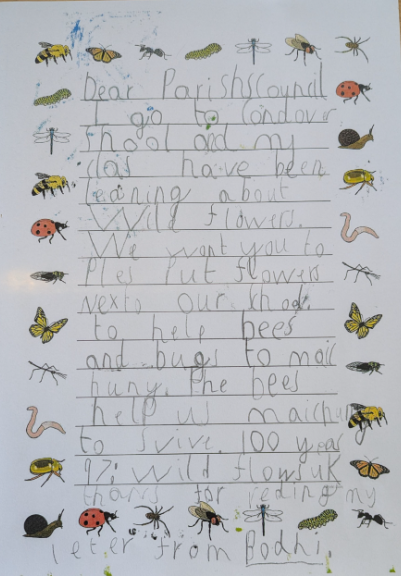 Dear Parishscouncil
I go to Condover
Shool and my
clas have been
leaning about
Wild flowers.
We want you to
Ples put flowers
nexto our shool.
to help bees
and bugs to maic
huny. The bees
help us maichuny
to svive. 100 years
97% wild flows uk
thans for reding my
leter from Bodhi.